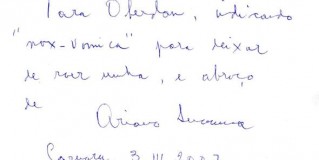 Para Oberdan, indicando
"nox-vomica" para deixar
de roer unha, e abraço
de
Ariano Suassuna
Caruaru, 3.III.2007